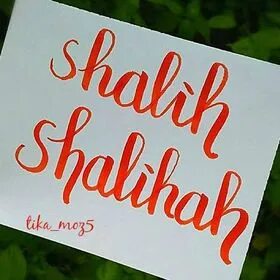 shalih
shalihah
tika_moz5